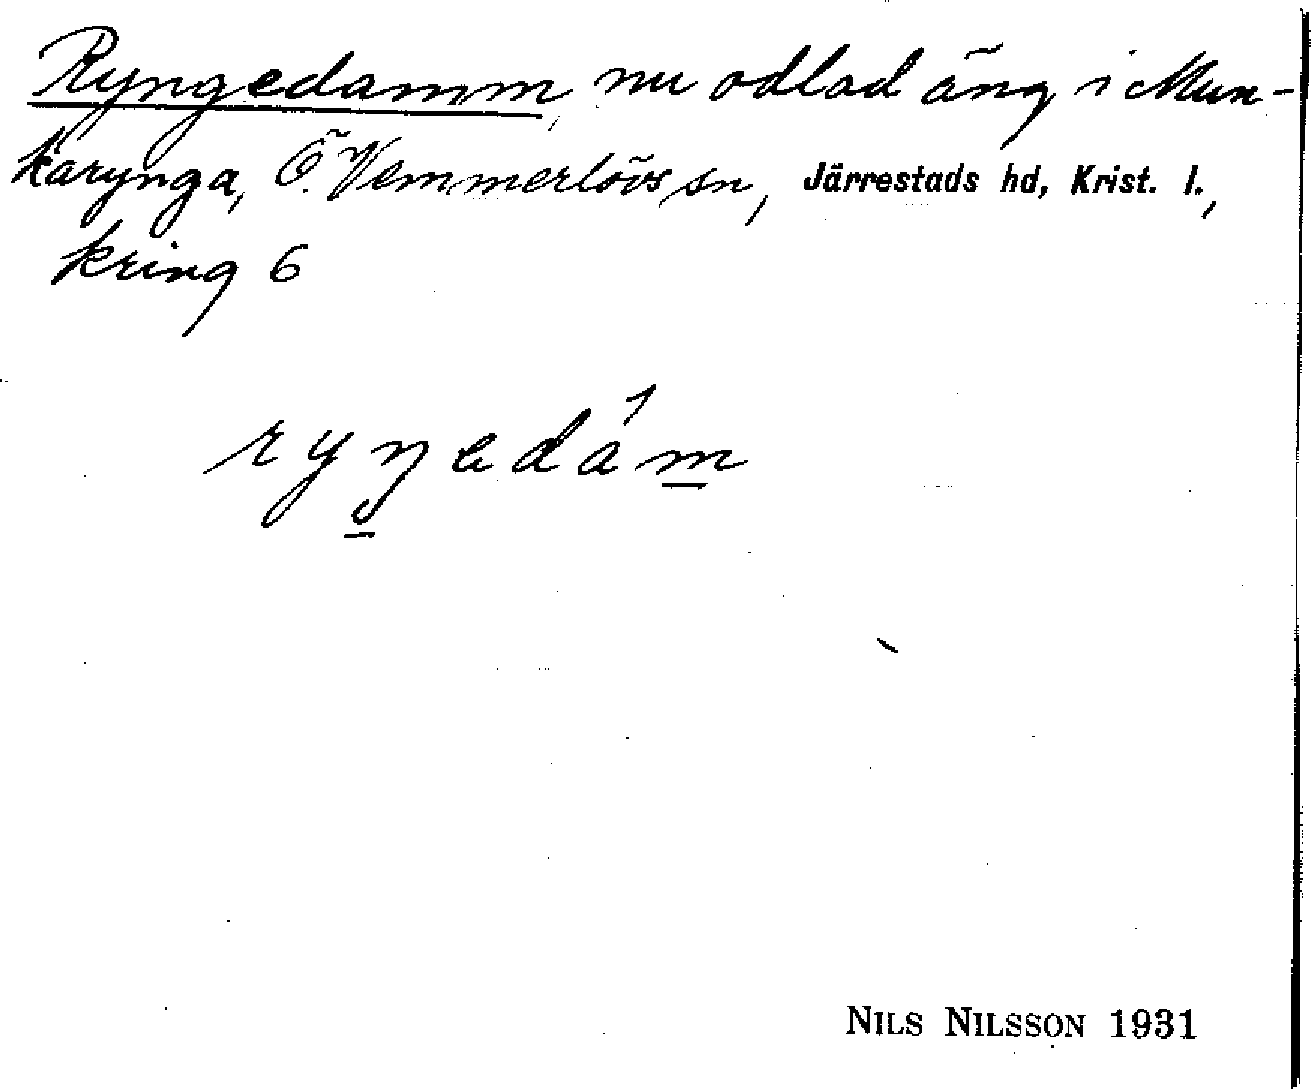 Ryngedamm, nu odlad äng i Mun-
karynga, Ö. Vemmerlövs sn, Järrestads hd, Krist. l.,
kring 6
ryŋedám
NILS NILSSON 1931